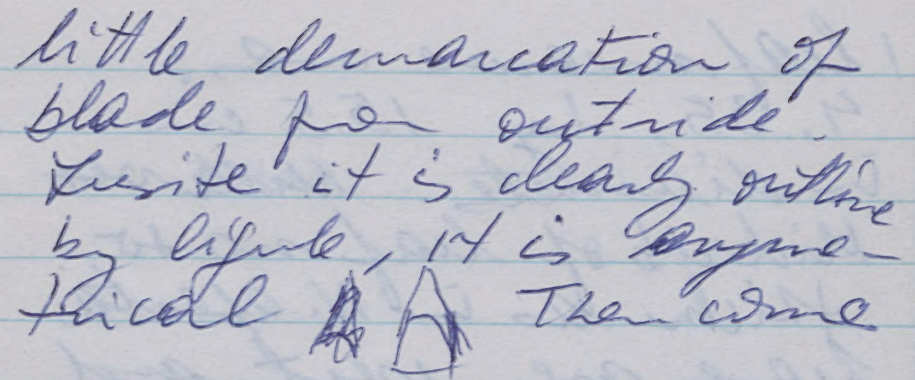 little demarcation of
blade from outside.
Inside it is clearly outline
by ligule, it is asyme-
trical Then come